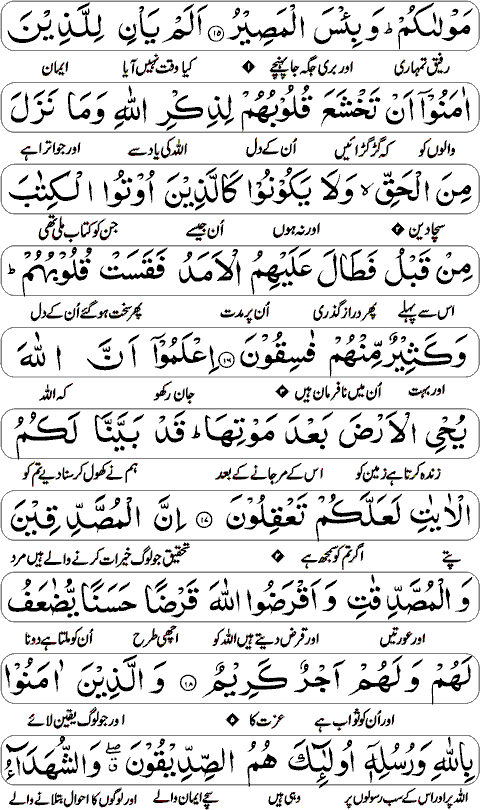 مَوْلٰىكُمْ ؕ وَ بِئْسَ الْمَصِيْرُ ﴿۱۵﴾ اَلَمْ يَاْنِ لِلَّذِيْنَ
رفیق تمہاری اور بری جگہ جا پہنچے کیا وقت نہیں آیا ایمان
اٰمَنُوْۤا اَنْ تَخْشَعَ قُلُوْبُهُمْ لِذِكْرِ اللّٰهِ وَمَا نَزَلَ
والوں کو کہ گڑگڑائیں اُن کے دل اللہ کی یاد سے اور جو اترا ہے
مِنَ الْحَقِّ ۙ وَلَا يَكُوْنُوْا كَالَّذِيْنَ اُوْتُوا الْكِتٰبَ
سچا دین اور نہ ہوں اُن جیسے جن کو کتاب ملی تھی
مِنْ قَبْلُ فَطَالَ عَلَيْهِمُ الْاَمَدُ فَقَسَتْ قُلُوْبُهُمْ ؕ
اس سے پہلے پھر دراز گذری اُن پر مدت پھر سخت ہو گئے اُن کے دل
وَكَثِيْرٌ مِّنْهُمْ فٰسِقُوْنَ ﴿۱۶﴾ اِعْلَمُوْۤا اَنَّ اللّٰهَ
اور بہت اُن میں نافرمان ہیں جان رکھو کہ اللہ
يُحْيِ الْاَرْضَ بَعْدَ مَوْتِهَا ؕ قَدْ بَيَّنَّا لَكُمُ
زندہ کرتا ہے زمین کو اس کے مر جانے کے بعد ہم نے کھول کر سنا دیے تم کو
الْاٰيٰتِ لَعَلَّكُمْ تَعْقِلُوْنَ ﴿۱۷﴾ اِنَّ الْمُصَّدِّقِيْنَ
پتے اگر تم کو سمجھ ہے تحقیق جو لوگ خیرات کرنے والے ہیں مرد
وَ الْمُصَّدِّقٰتِ وَ اَقْرَضُوا اللّٰهَ قَرْضًا حَسَنًا يُّضٰعَفُ
اور عورتیں اور قرض دیتے ہیں اللہ کو اچھی طرح اُن کو ملتا ہے دونا
لَهُمْ وَ لَهُمْ اَجْرٌ كَرِيْمٌ ﴿۱۸﴾ وَ الَّذِيْنَ اٰمَنُوْا
اور اُن کو ثواب ہے عزت کا اور جو لوگ یقین لائے
بِاللّٰهِ وَ رُسُلِهٖۤ اُولٰٓئِكَ هُمُ الصِّدِّيْقُوْنَ ۖ وَ الشُّهَدَآءُ
اللہ پر اور اس کے سب رسولوں پر وہی ہیں سچے ایمان والے اور لوگوں کا احوال بتلانے والے